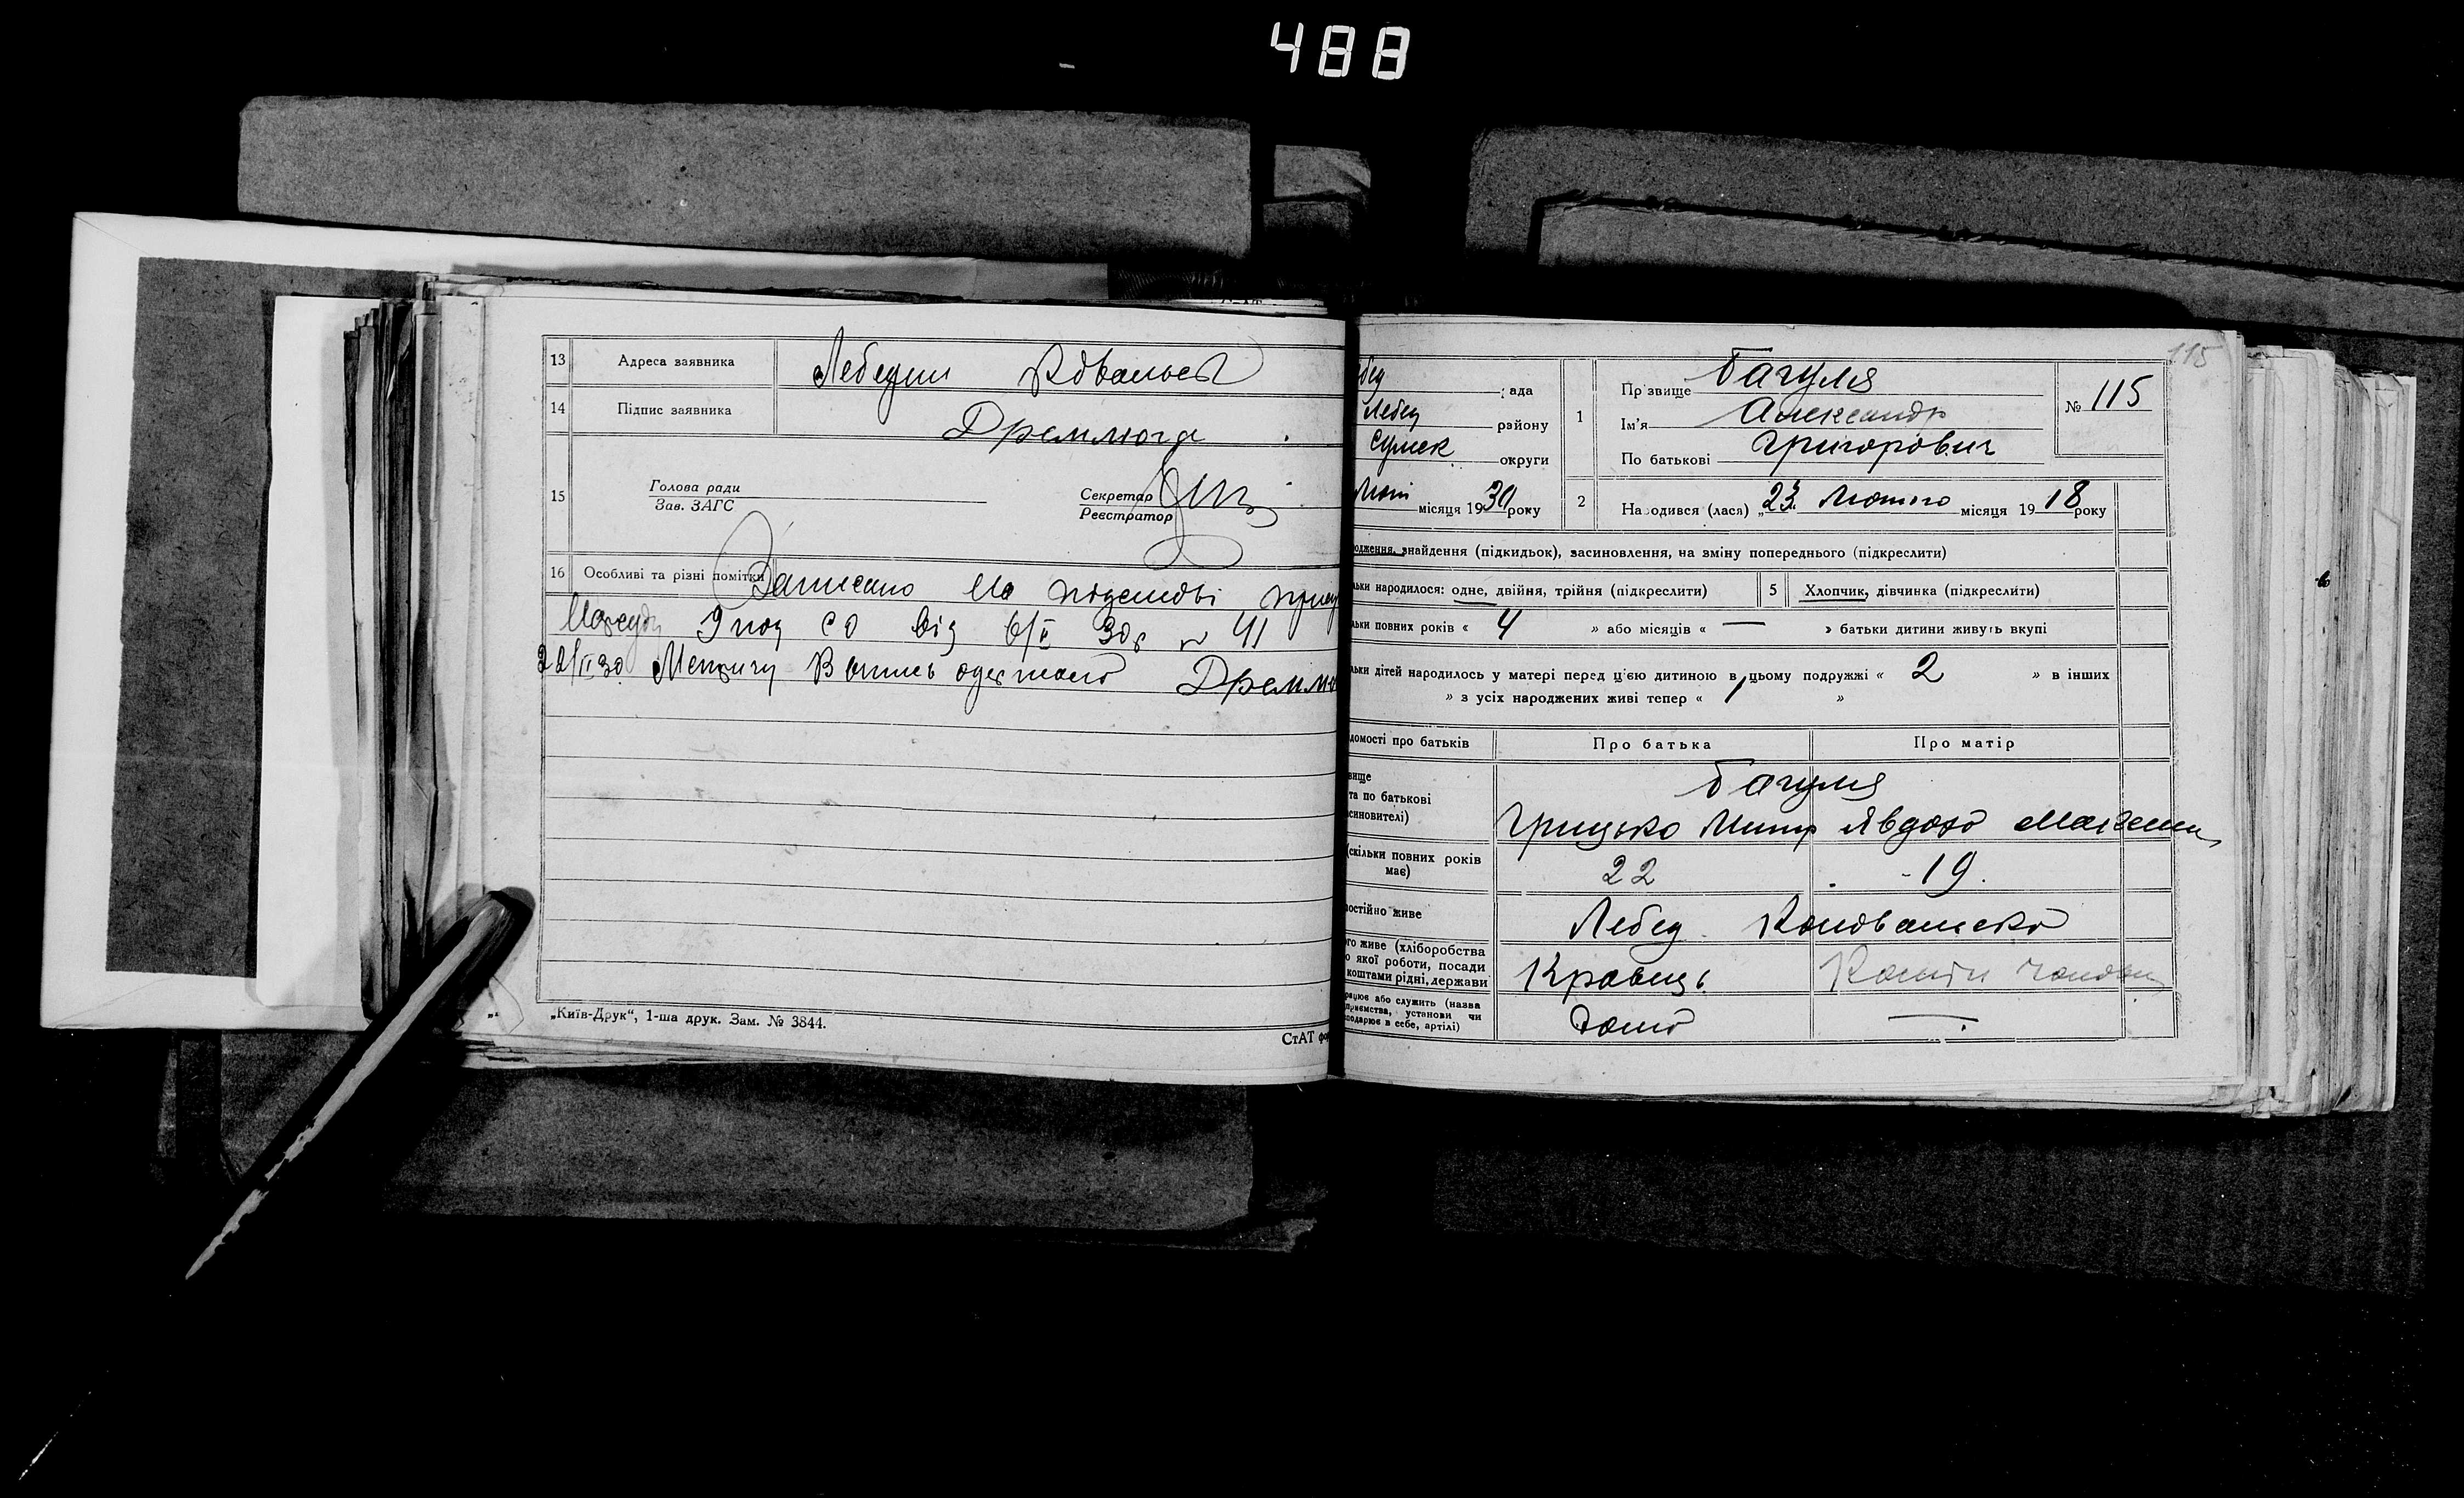 488
13 Адреса заявника Лебедин
14 Підпис заявника Дремлюга
15 Голова ради Зав. ЗАГС Секретар Реєстратор
16 Особливі та різні помітки Записано на підставі
від 6/II 30р № 41
22/II 30 Метричну Выпись одержала Дремлю
„Київ-Друк“, 1-ша друк. Зам. № 3844.
СтАТ фор
115
бед ада
Лебед району
Сумск округи
місяця 1930 року
1 Прізвище Багуля
Ім'я Александр
По батькові Григорович
№ 115
2 Народився (лася) „23“ Лютого місяця 1918 року
одження, знайдення (підкидьок), засиновлення, на зміну попереднього (підкреслити)
льки народилося: одне, двійня, трійня (підкреслити) 5 Хлопчик, дівчинка (підкреслити)
льки повних років « 4 » або місяців « — » батьки дитини живуть вкупі
льки дітей народилось у матері перед ц'єю дитиною в цьому подружжі « 2 » в інших
» з усіх народжених живі тепер « 1 »
домості про батьків Про батька Про матір
вище
та по батькові
синовителі)
Багуля
Грицько Митр Явдоха
(скільки повних років має) 22 19.
постійно живе Лебед.
ого живе (хліборобства
о якої роботи, посади
коштами рідні, держави
Кравець Кошти
рацює або служить (назва
приємства, установи чи
подарює в себе, артілі)
Дома —